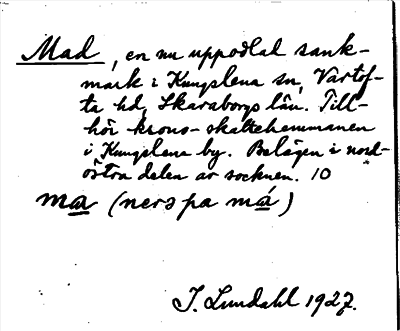 Mad, en nu uppodlad sank-
mark i Kungslena sn, Vartof-
ta hd, Skaraborgs län. Till-
hör krono-skattehemmanen
i Kungslena by. Belägen i nord-
östra delen av socknen. 10
ma (ners på má)
J. Lundahl 1927.